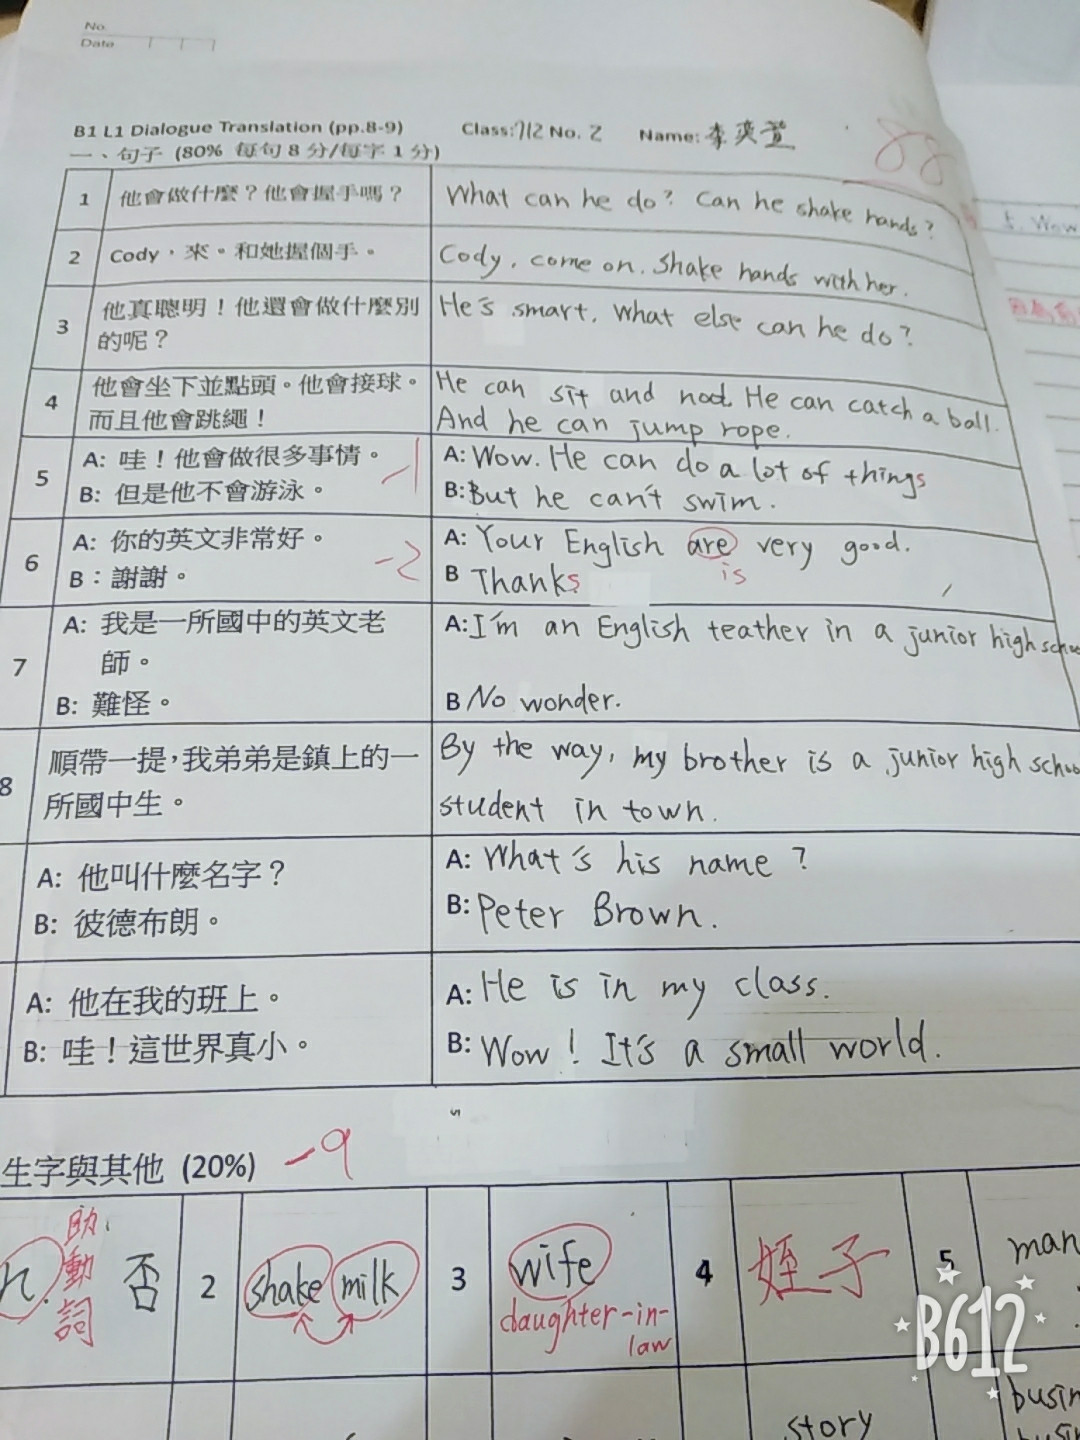 No.
Date
B1 L1 Dialogue Translation (pp.8-9) Class:712 No. 2 Name: 李奕萱
88
一、句子 (80% 每句 8 分/每字 1 分)
1 他會做什麼？他會握手嗎？ What can he do? Can he shake hands?
2 Cody，來。和她握個手。 Cody, come on. Shake hands with her.
3 他真聰明！他還會做什麼別 He's smart. What else can he do?
的呢？
4 他會坐下並點頭。他會接球。 He can sit and nod. He can catch a ball.
而且他會跳繩！ And he can jump rope.
5 A: 哇！他會做很多事情。 -1 A: Wow. He can do a lot of things
B: 但是他不會游泳。 B: But he can't swim.
6 A: 你的英文非常好。 -2 A: Your English are very good.
is
B：謝謝。 B Thanks
7 A: 我是一所國中的英文老 A: I'm an English teather in a junior high schoo
師。
B: 難怪。 B No wonder.
8 順帶一提，我弟弟是鎮上的一 By the way, my brother is a junior high schoo
所國中生。 student in town.
A: 他叫什麼名字？ A: What's his name?
B: 彼德布朗。 B: Peter Brown.
A: 他在我的班上。 A: He is in my class.
B: 哇！這世界真小。 B: Wow! It's a small world.
生字與其他 (20%) -9
助動詞 否 2 shake milk 3 wife 4 姪子 5 man
daughter-in-law
story busin
t. Wow
B612